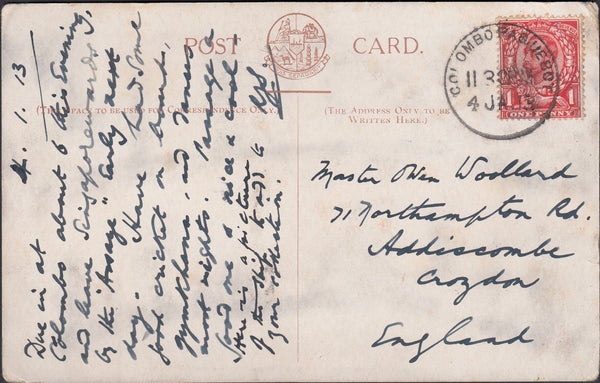 POST CARD.
(This space to be used for Correspondence Only.)
(The Address Only to be
Written Here.)
COLOMBO PAQUEBOT
11 30
4 JA 13
ONE PENNY
4. 1. 13
Due in at
Colombo about 6 this Evening,
and leave Singapore wards
by the "Assaye" Early next
day. Have had some
good cricket on board,
gymkhana, and dances
most nights. Managed a
good one & nice & cool!
Here is a picture
of the ship to add to
your collection.
Master Owen Woollard
71 Northampton Rd.
Addiscombe
Croydon
England